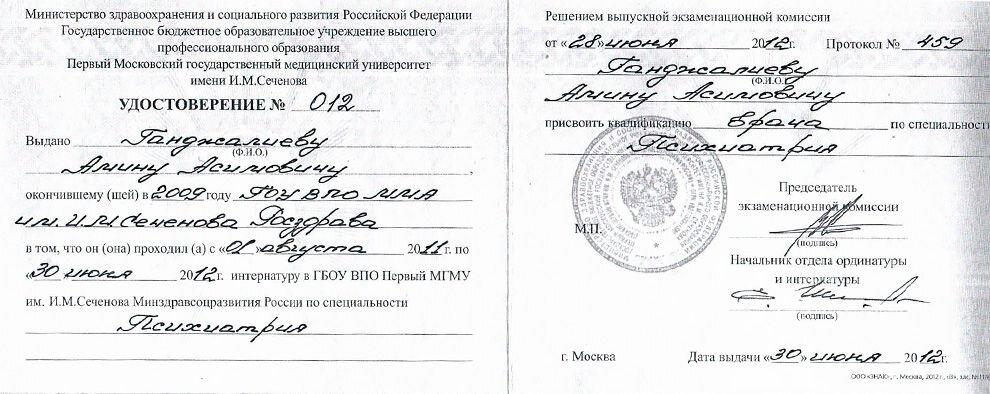 Министерство здравоохранения и социального развития Российской Федерации
Государственное бюджетное образовательное учреждение высшего
профессионального образования
Первый Московский государственный медицинский университет
имени И.М.Сеченова
УДОСТОВЕРЕНИЕ № 012
Выдано Ганджалиеву
(Ф.И.О.)
Амину Асимовичу,
окончившему (шей) в 2009 году ГОУ ВПО ММА
им. И.М. Сеченова Росздрава
в том, что он (она) проходил (а) с «01» августа 2011г. по
«30 июня 2012г. интернатуру в ГБОУ ВПО Первый МГМУ
им. И.М.Сеченова Минздравсоцразвития России по специальности
Психиатрия
Решением выпускной экзаменационной комиссии
от «28» июня 2012г. Протокол № 459
Ганджалиеву
(Ф.И.О.)
Амину Асимовичу
присвоить квалификацию врача по специальности
Психиатрия
Председатель
экзаменационной комиссии
М.П.
(подпись)
Начальник отдела ординатуры
и интернатуры
(подпись)
г. Москва Дата выдачи «30» июня 2012г.
ООО «ЗНАК», г. Москва, 2012 г., «В»,